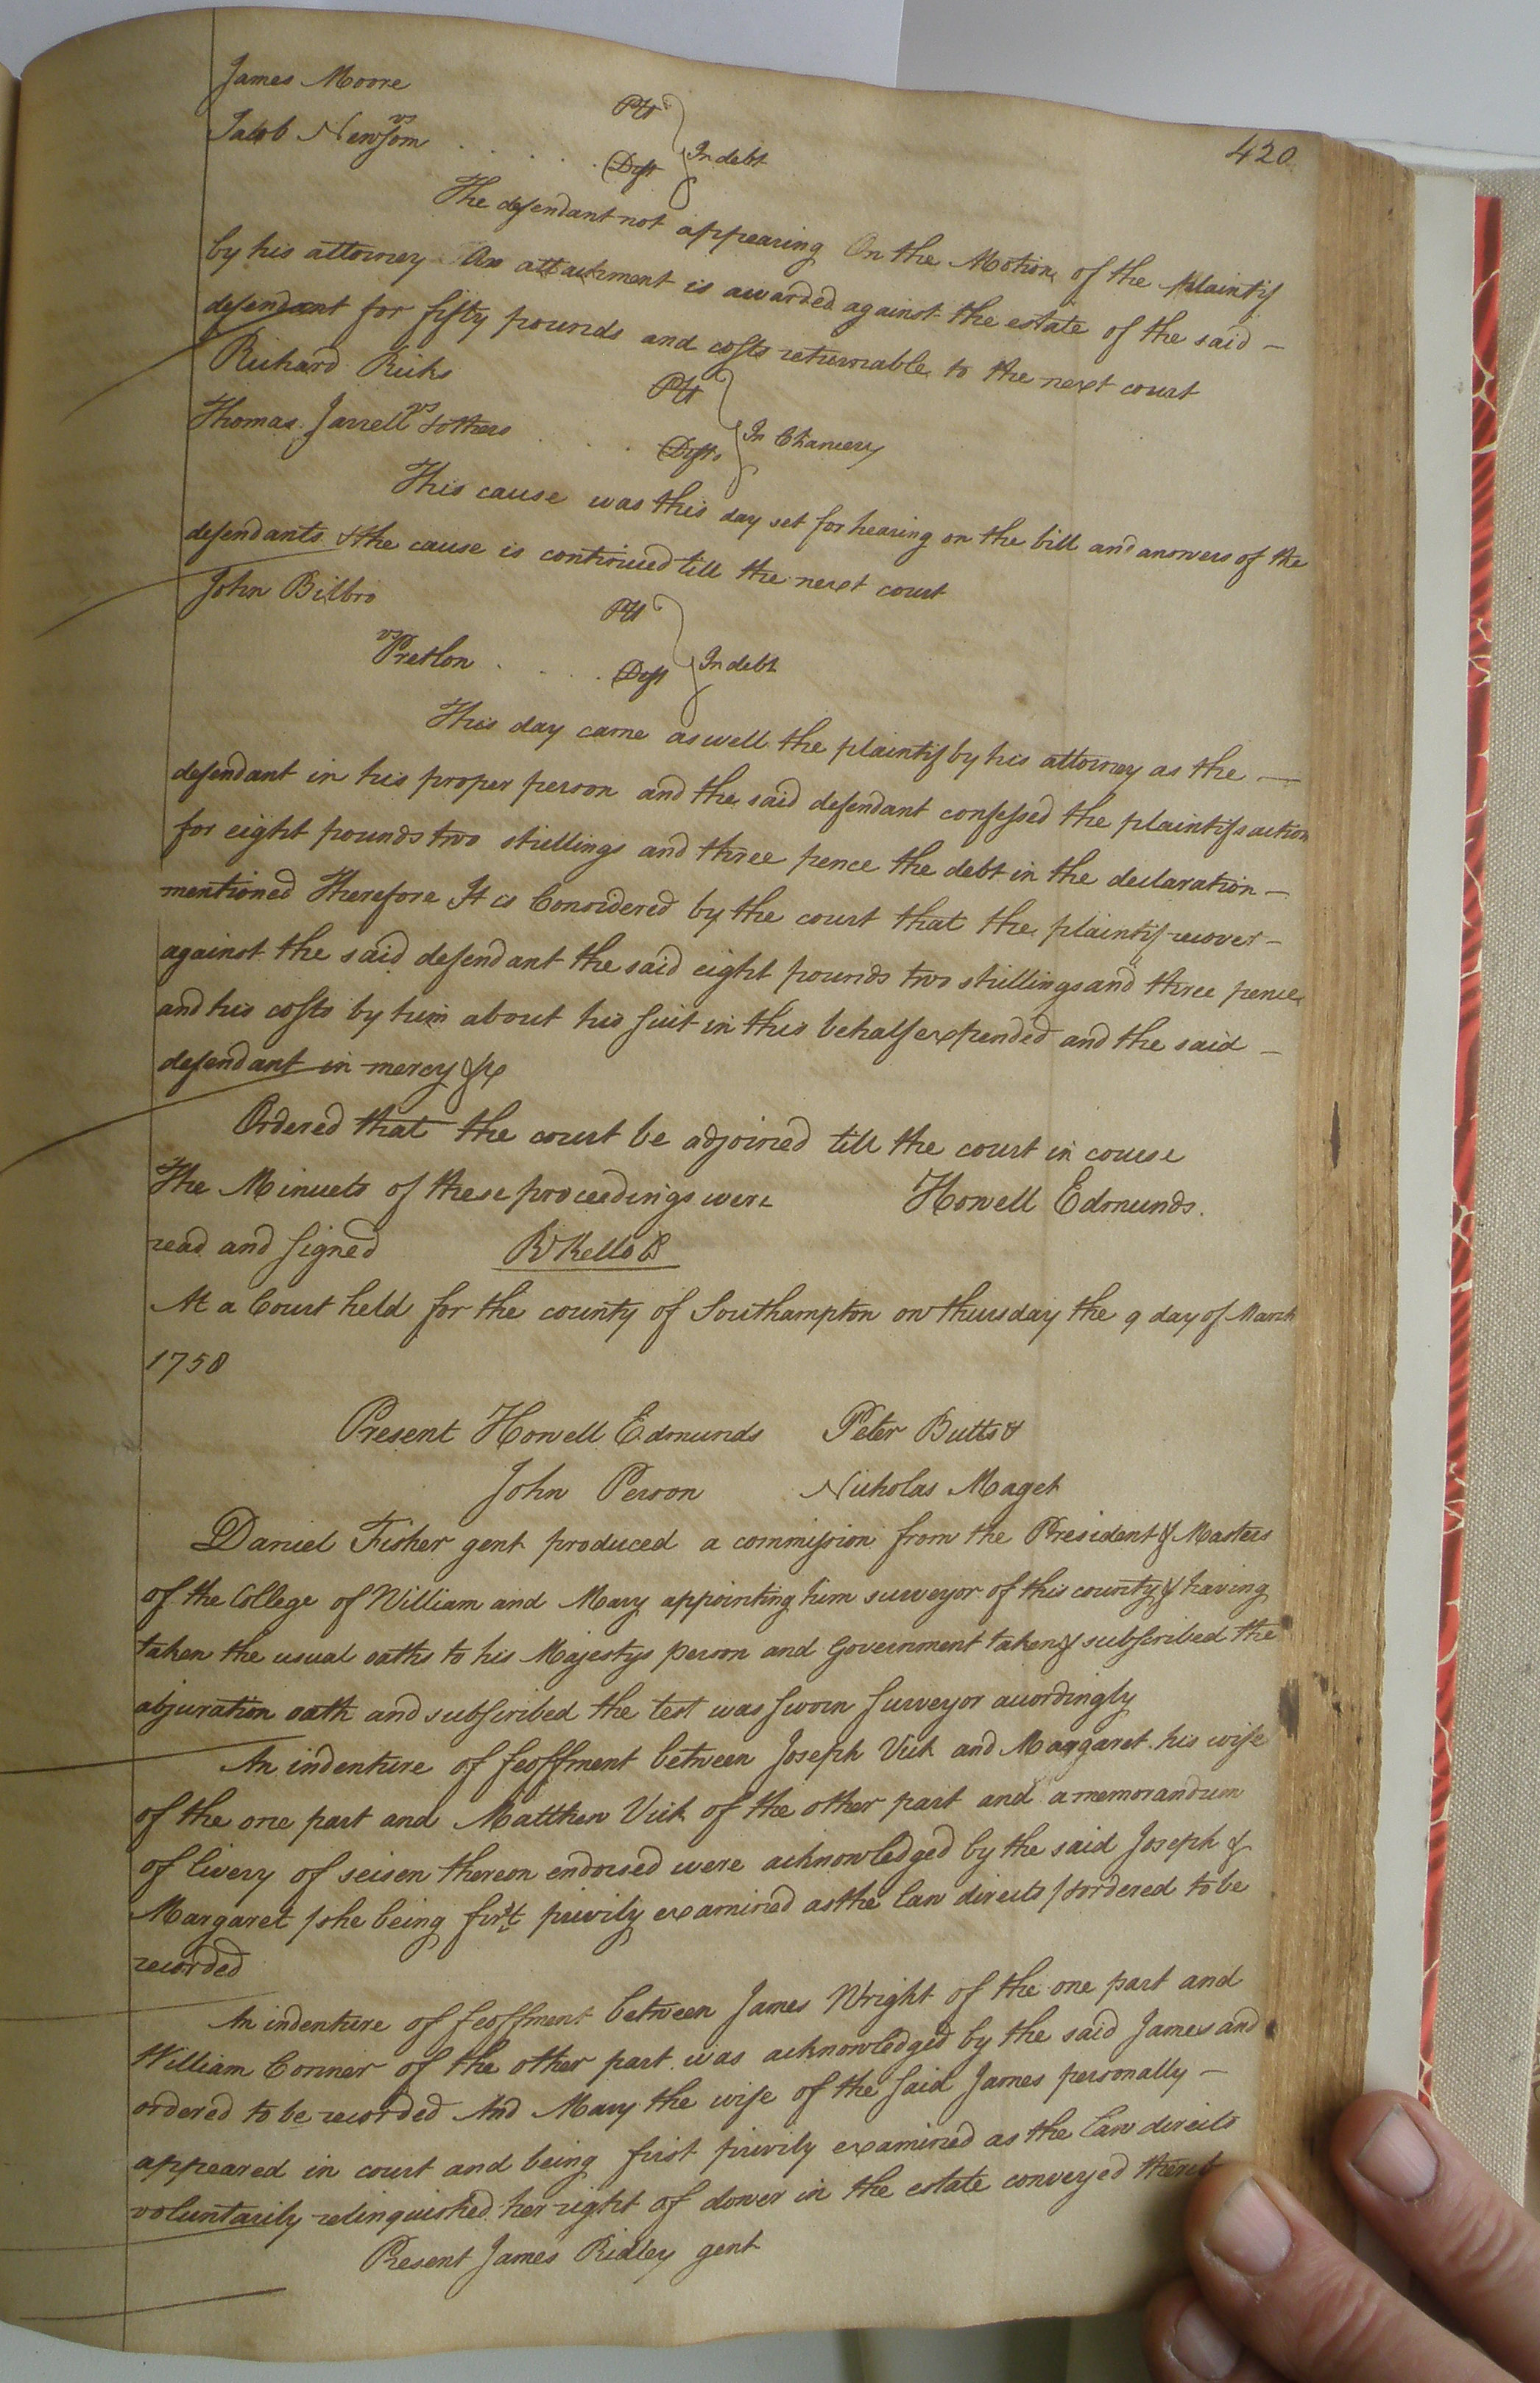 420
James Moore Plt
vs
Jacob Newsom . . . . . Deft } In debt
The defendant not appearing On the Motion of the plaintif
by his attorney An attachment is awarded against the estate of the said –
defendant for fifty pounds and costs returnable to the next court
Richard Ricks Plt
vs
Thomas Jarrell & others . . . Defts } In Chancery
This cause was this day set for hearing on the bill and answers of the
defendants & the cause is continued till the next court
John Bilbro Plt
vs
Pretlon . . . . Deft } In debt
This day came as well the plaintif by his attorney as the —
defendant in his proper person and the said defendant confessed the plaintifs action
for eight pounds two shillings and three pence the debt in the declaration –
mentioned Therefore It is Considered by the court that the plaintif recover –
against the said defendant the said eight pounds two shillings and three pence
and his costs by him about his suit in this behalf expended and the said –
defendant in mercy &c
Ordered that the court be adjoined till the court in course
The Minuets of these proceedings were Howell Edmunds.
read and signed R Kello
At a Court held for the county of Southampton on thursday the 9 day of March
1758
Present Howell Edmunds Peter Butts &
John Person Nicholas Maget
Daniel Fisher gent produced a commission from the President & Masters
of the College of William and Mary appointing him surveyor of this county & having
taken the usual oaths to his Majestys person and Government taken & subscribed the
abjuration oath and subscribed the test was sworn surveyor accordingly
An indenture of feoffment between Joseph Vick and Margaret his wife
of the one part and Matthew Vick of the other part and a memorandum
of livery of seisen thereon endorsed were acknowledged by the said Joseph &
Margaret /she being first privily examined as the law directs/ & ordered to be
recorded
An indenture of feoffment between James Wright of the one part and
William Conner of the other part was acknowledged by the said James and
ordered to be recorded And Mary the wife of the said James personally –
appeared in court and being first privily examined as the law directs
voluntarily relinquished her right of dower in the estate conveyed
Present James Ridley gent